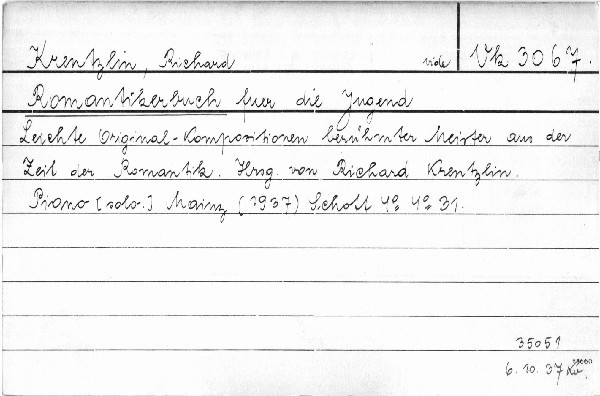 Krentzlin, Richard vide Vk 3067.
Romantikerbuch fuer die Jugend
Leichte Original-Kompositionen berühmter Meister aus der
Zeit der Romantik. Hrsg. von Richard Krentzlin.
Piano (solo.) Mainz (1937) Schott 4º 4º 31.
35051
6. 10. 37